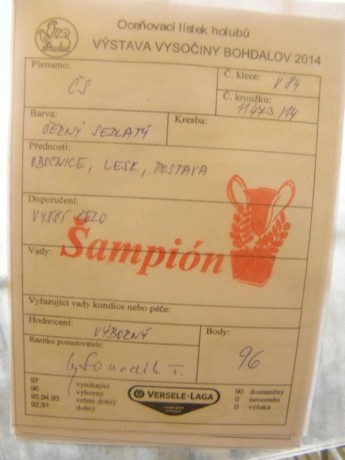 Oceňovací lístek holubů
VÝSTAVA VYSOČINY BOHDALOV 2014
Plemeno:
ČS
Č. klece:
V 84
Č. kroužku:
11473/14
Barva:
ČERNÝ SEDLATÝ
Kresba:
Přednosti:
OBOČNICE, LESK, POSTAVA
Doporučení:
VYŠŠÍ ČELO
Šampión
Vady:
Vyřazující vady kondice nebo péče:
Hodnocení:
VÝBORNÝ
Razítko posuzovatele:
Body:
96
97 vynikající
96 výborný
95,94,93 velmi dobrý
92,91 dobrý
VERSELE-LAGA
90 dostatečný
0 neoceněn
0 výluka